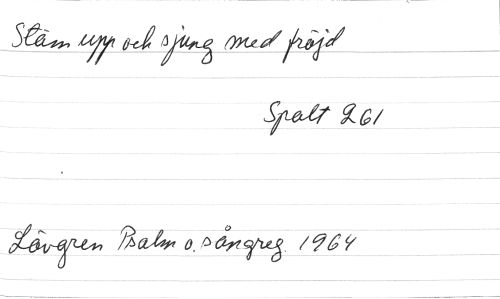 Stäm upp och sjung med fröjd
Spalt 261
Lövgren Psalm o. sångreg. 1964